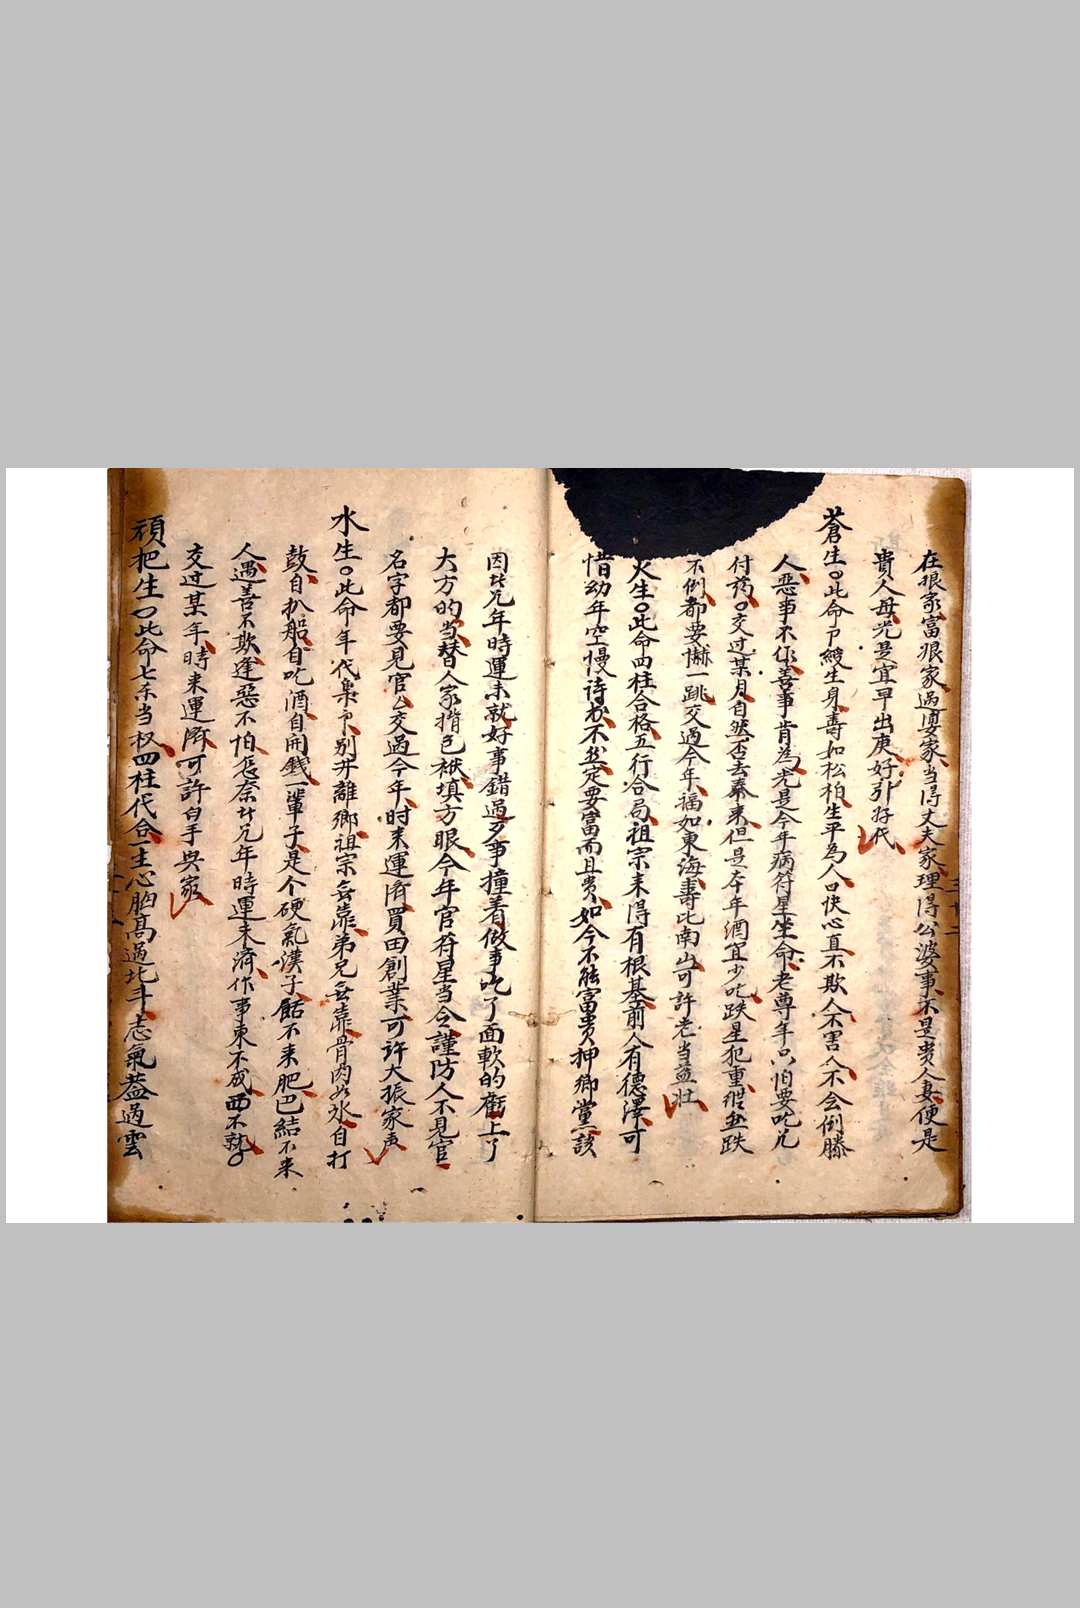 在狠家富狠家過運家当得丈夫家理得公婆事不是贵人妻便是
貴人母光景宜早出庚好引好代
蒼生○此命卩綬生身壽如松柏生平為人口快心直不欺人不害人不会倒藤
人惡事不作善事肯為光是今年病符星坐命老尊年只怕要吃几
付药○交过某月自然否去泰来但是本年酒宜少吃跌星犯重雖然跌
不倒都要嚇一跳交過今年福如東海壽比南山可許老当益壯
火生○此命四柱合格五行合局祖宗来得有根基前人有德澤可
惜幼年空慢诗书不然定要富而且贵如今不能富贵押鄉黨談
因此几年時運未就好事錯過歹事撞着做事吃了面軟的虧上了
大方的当替人家揹包袱填方眼今年官符星当令謹防人不見官
名字都要見官么交過今年时来運濟買田創業可许大振家声
水生○此命年代梟卩别井離鄉祖宗無靠弟兄無靠骨肉如氷自打
鼓自扒船自吃酒自開錢一輩子是个硬氣漢子餂不来肥巴結不来
人遇善不欺逢惡不怕怎奈廿几年時運未濟作事東不成西不就○
交过某年時来運濟可許白手興家
頑把生○此命七杀当权四柱代合一生心胸高過北斗志氣蓋過雲